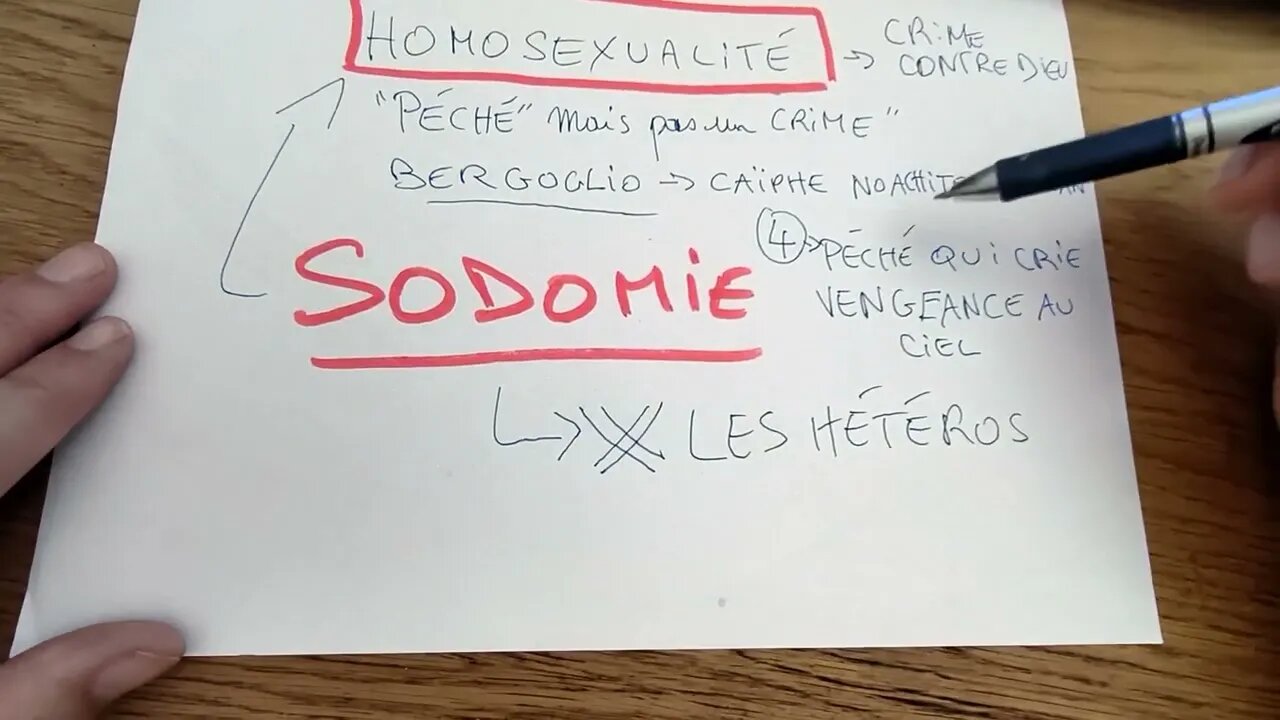 HOMOSEXUALITÉ → CRIME
CONTRE DIEU
"PÉCHÉ" mais pas un CRIME"
BERGOGLIO → CAÏPHE
SODOMIE
④→ PÉCHÉ QUI CRIE
VENGEANCE AU
CIEL
LES HÉTÉROS